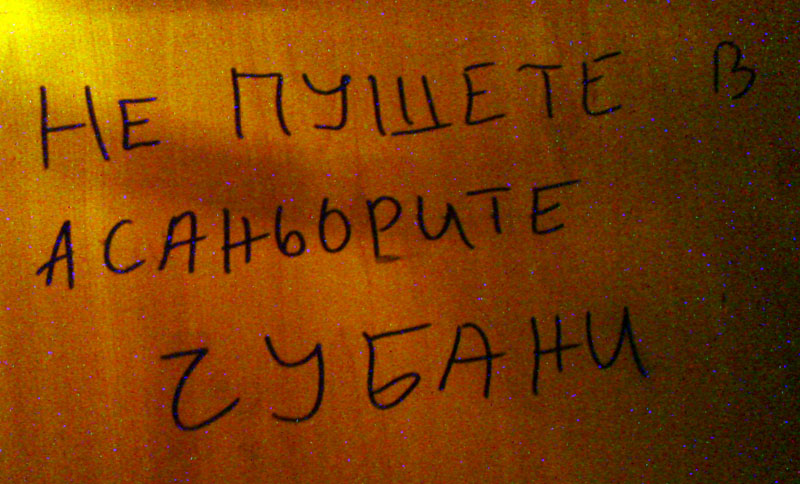 НЕ ПУШЕТЕ В
АСАНЬОРИТЕ
ГУБАНИ